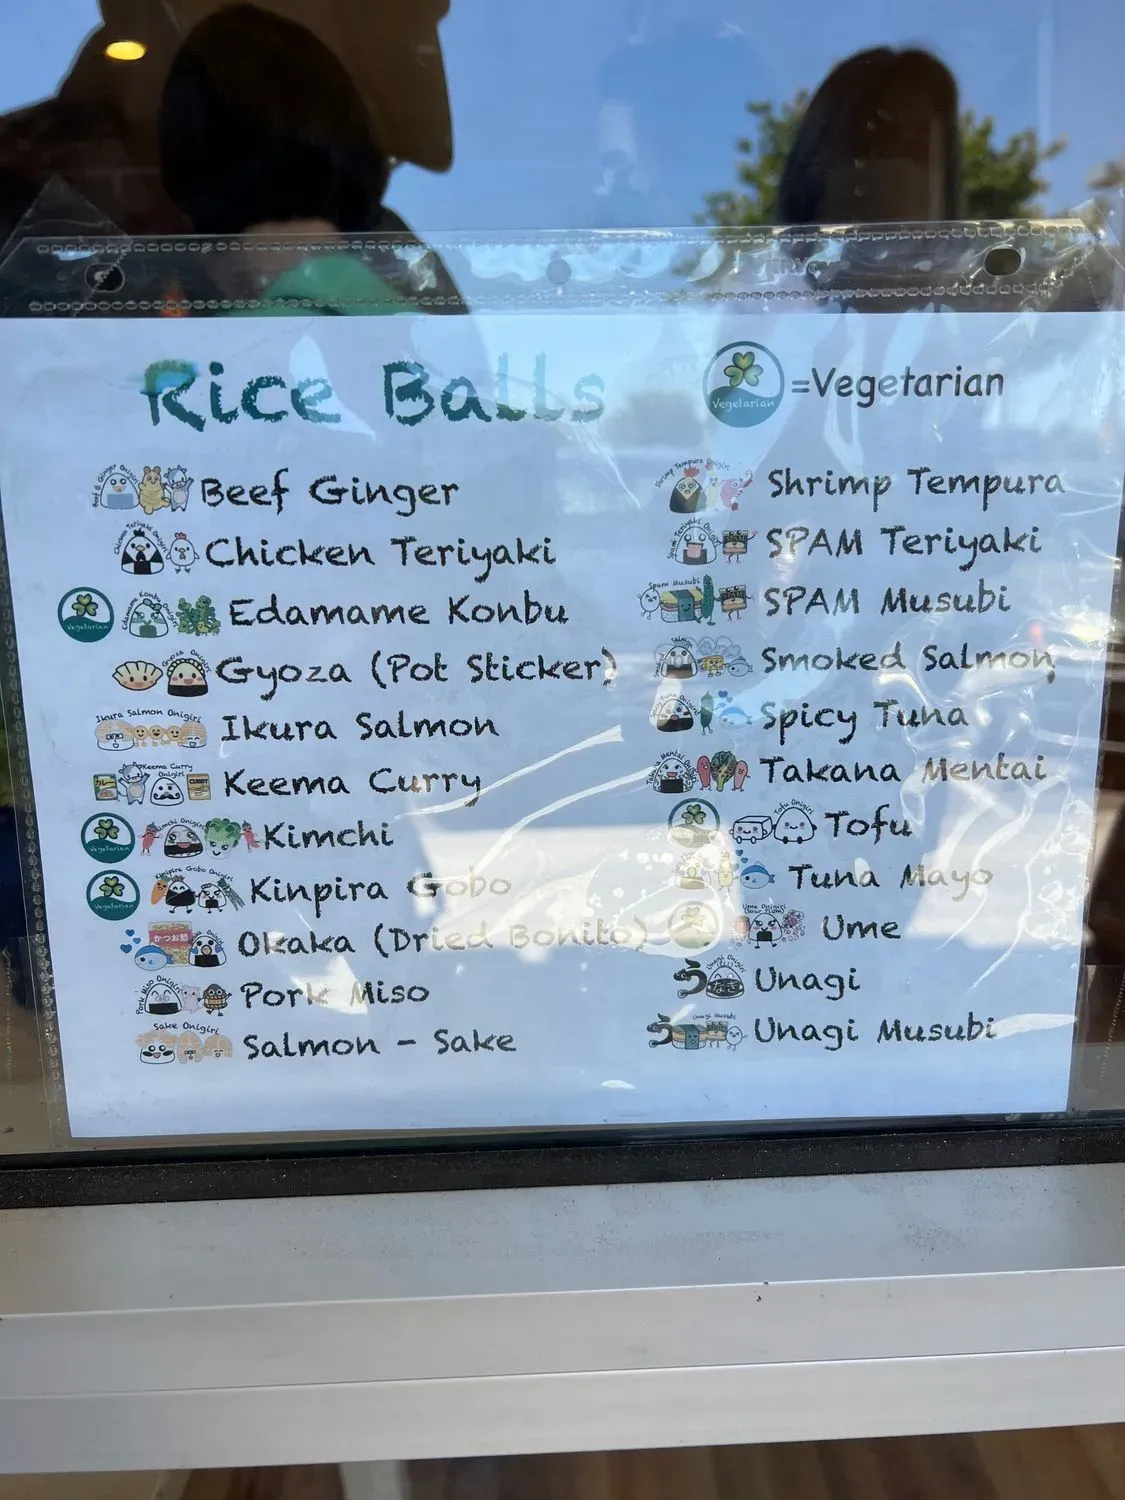 Rice Balls
Vegetarian
=Vegetarian
Beef & Ginger Onigiri
Beef Ginger
Chicken Teriyaki Onigiri
Chicken Teriyaki
Vegetarian
Edamame Konbu Onigiri
Edamame Konbu
Gyoza Onigiri
Gyoza (Pot Sticker)
Ikura Salmon Onigiri
Ikura Salmon
カレー
Keema Curry Onigiri
CURRY
Keema Curry
Vegetarian
Kimchi Onigiri
Kimchi
Vegetarian
Kinpira Gobo Onigiri
Kinpira Gobo
かつお節
Onigiri
Okaka (Dried Bonito)
Pork Miso Onigiri
Pork Miso
Sake Onigiri
Salmon - Sake
Shrimp Tempura Onigiri
Shrimp Tempura
Spam Teriyaki Onigiri
SPAM Teriyaki
Spam Musubi
SPAM Musubi
Smoked Salmon
Spicy Tuna
Takana Mentai Onigiri
Takana Mentai
Tofu Onigiri
Tofu
Tuna Mayo
Ume Onigiri
(Sour Plum)
Ume
う
Unagi Onigiri
Unagi
う
Unagi Musubi
Unagi Musubi